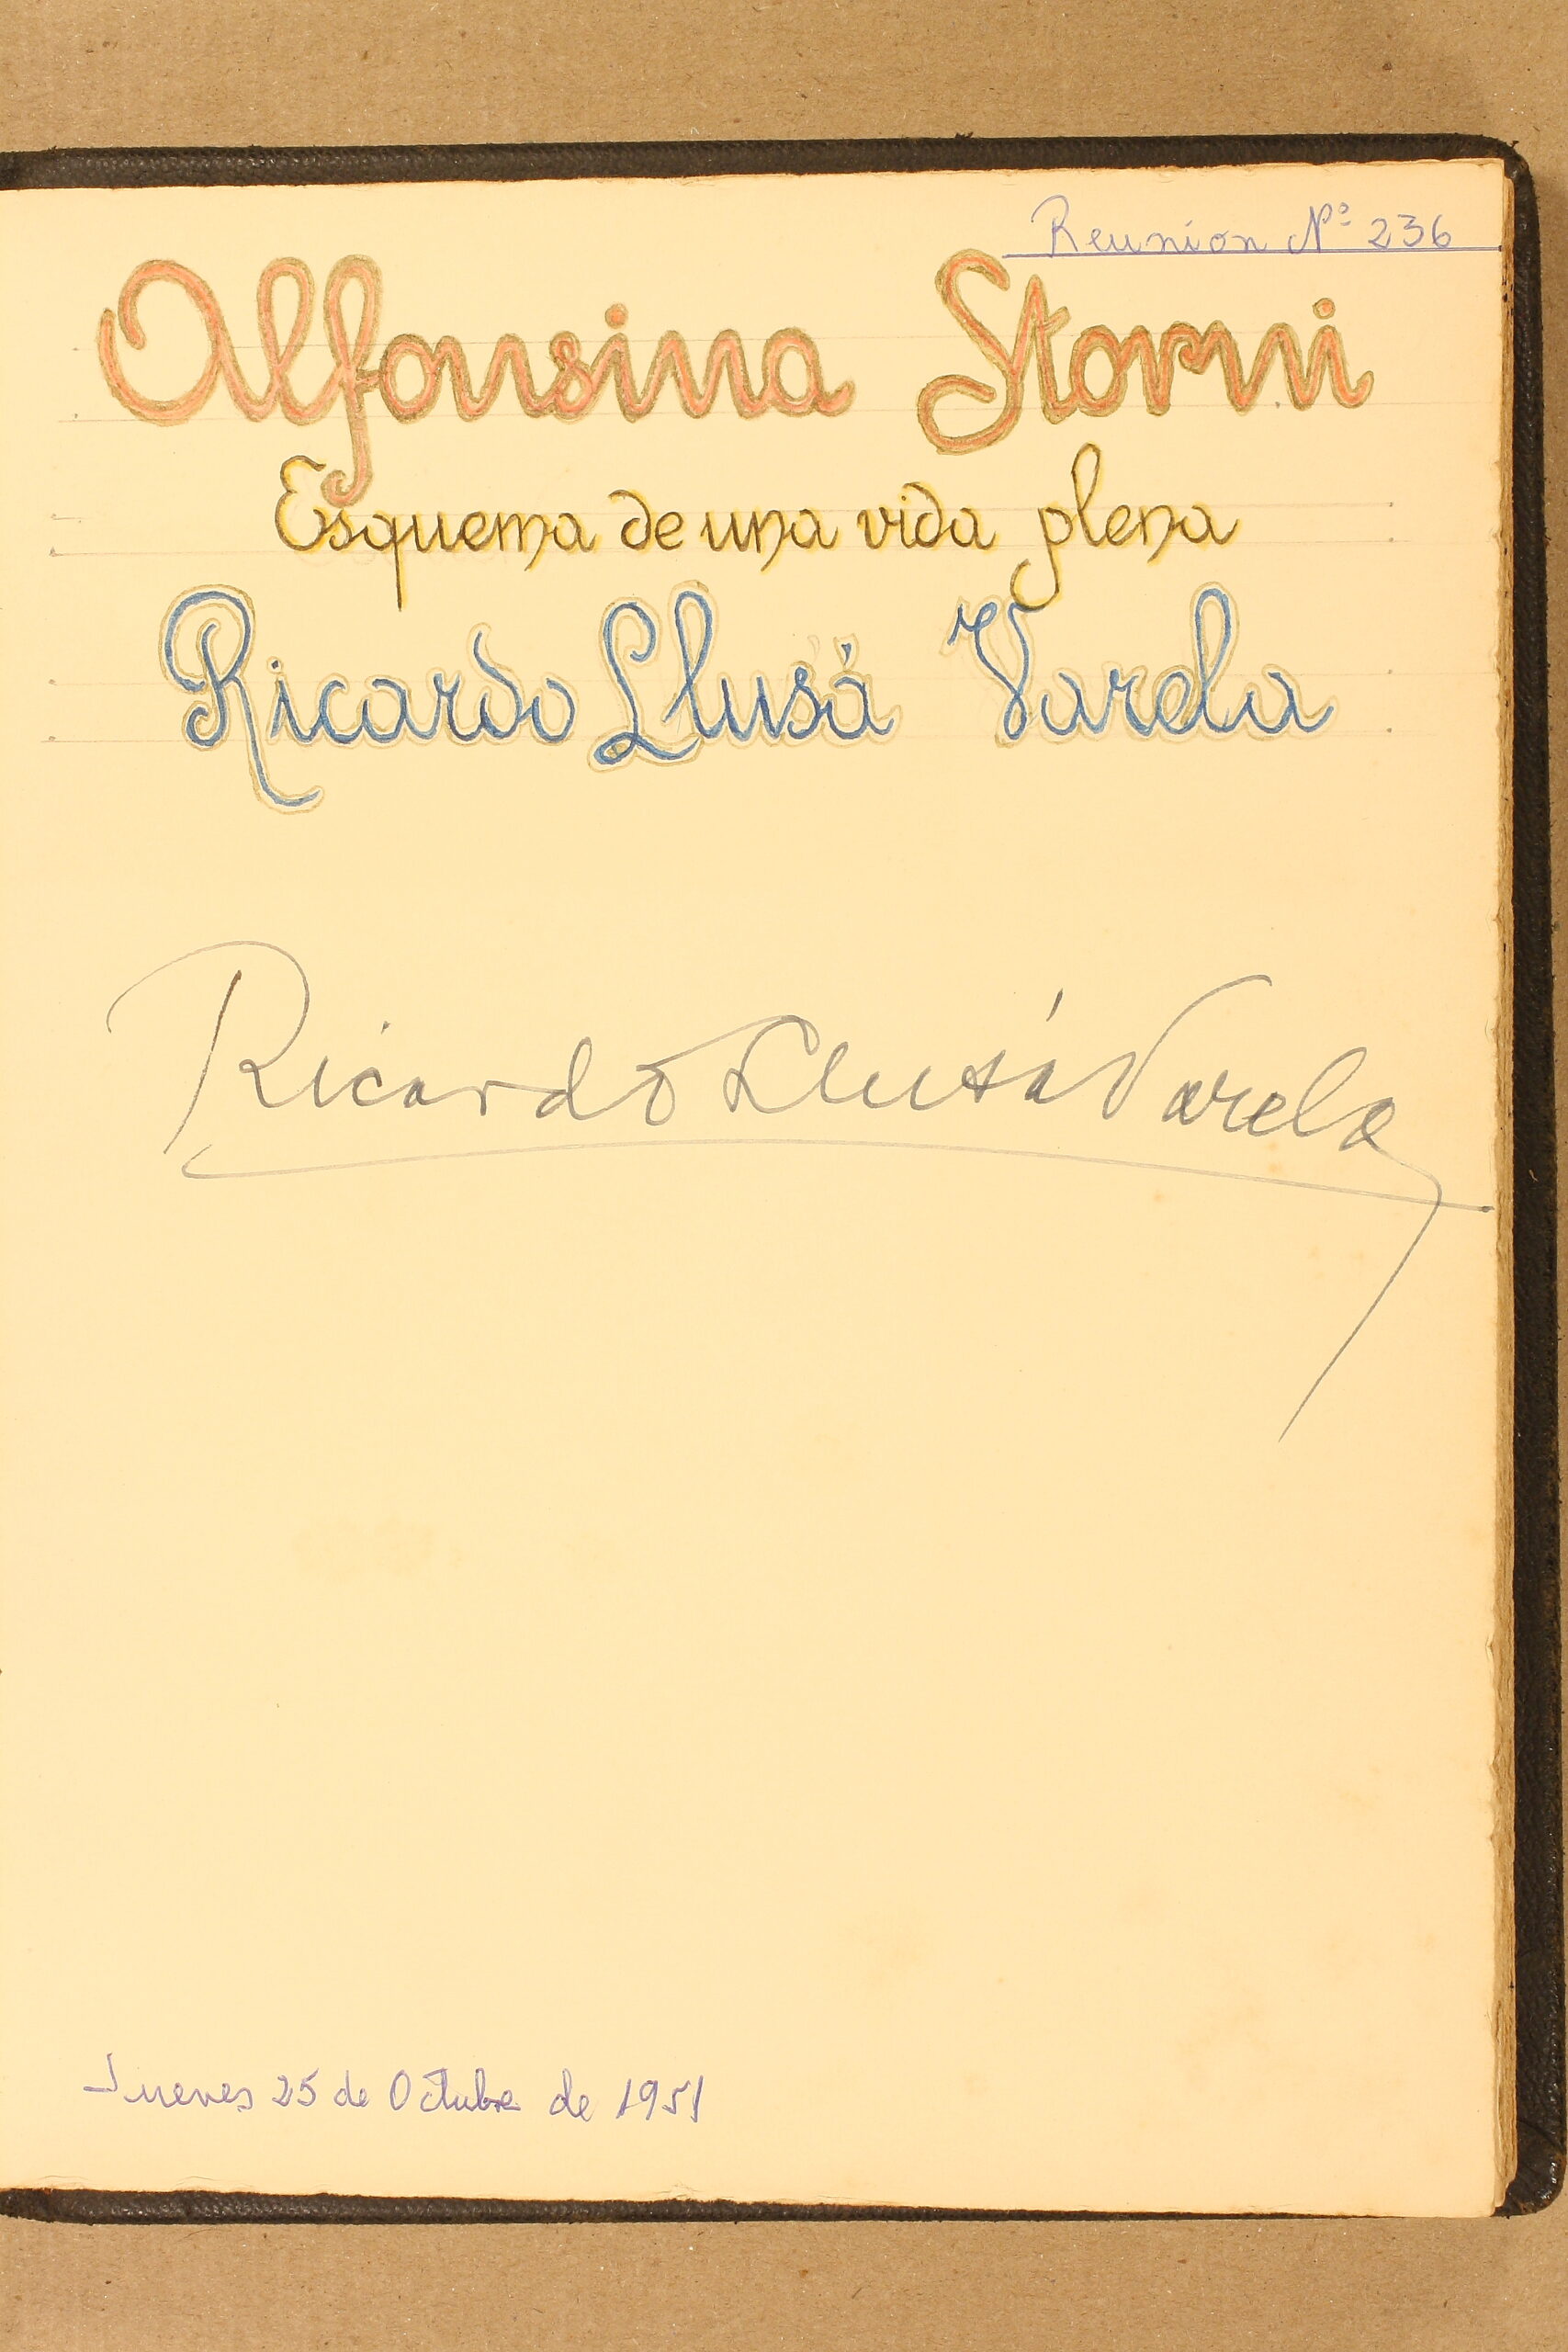 Reunion Nº 236
Alfonsina Storni
Esquema de una vida plena
Ricardo Llusá Varela
Ricardo Llusá Varela
Jueves 25 de Octubre de 1951